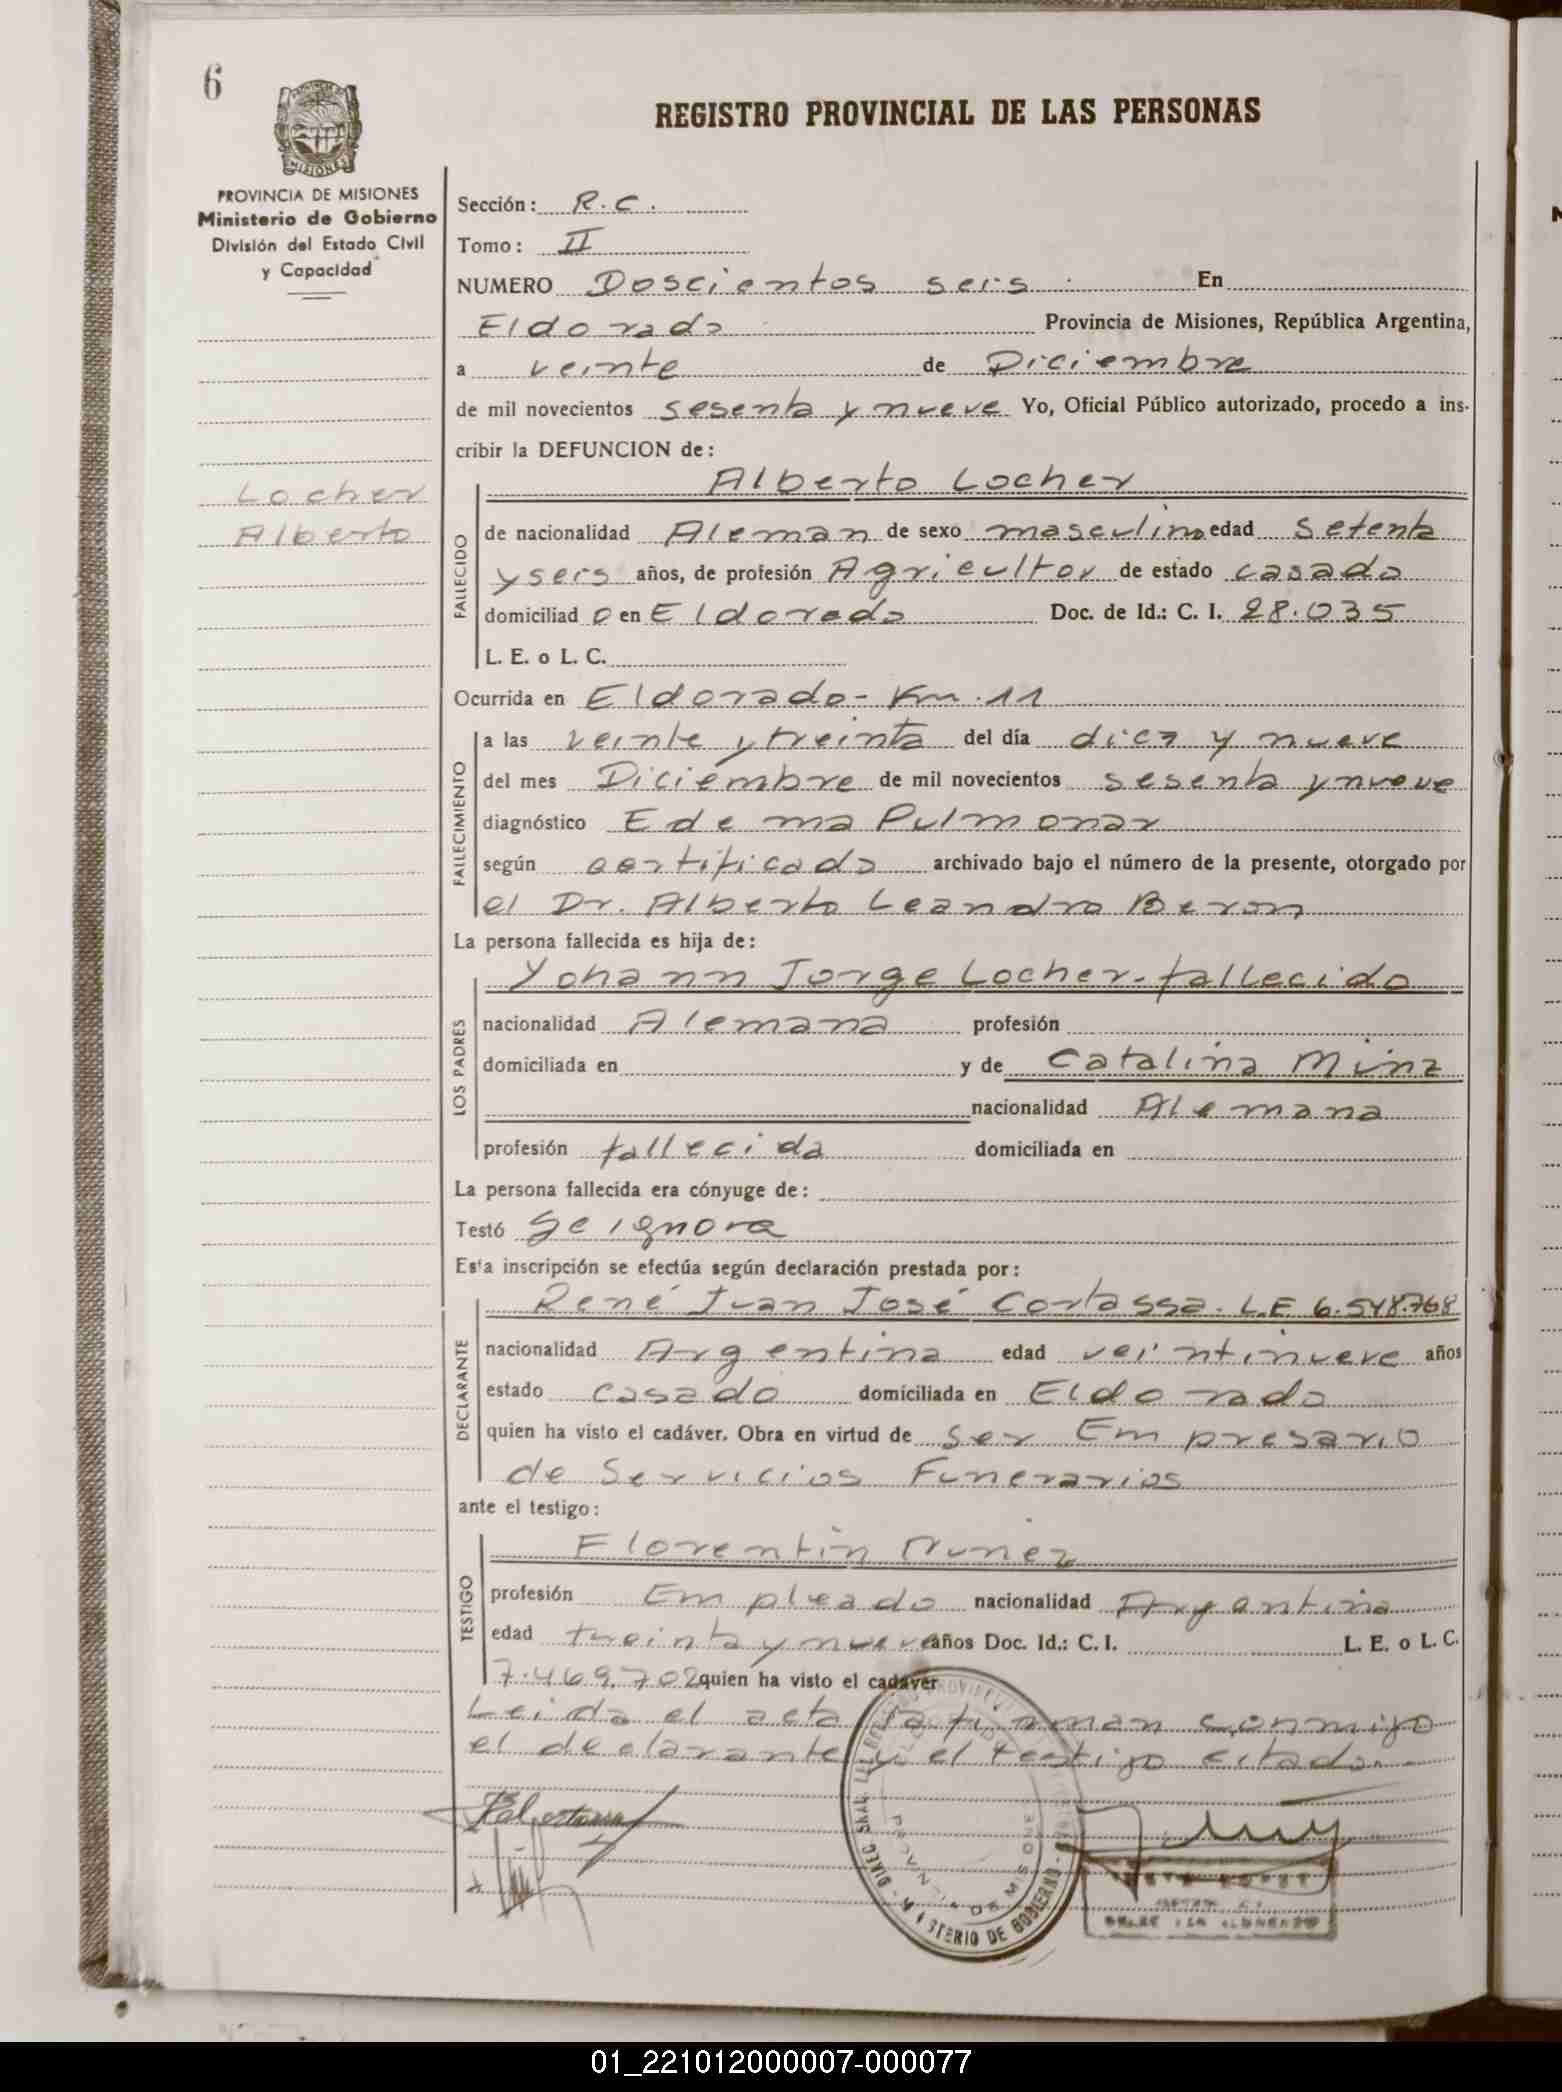 6
REGISTRO PROVINCIAL DE LAS PERSONAS
PROVINCIA DE MISIONES
Ministerio de Gobierno
División del Estado Civil
y Capacidad
Sección: R.C.
Tomo: II
NUMERO Doscientos seis En
Eldorado Provincia de Misiones, República Argentina,
a veinte de Diciembre
de mil novecientos sesenta y nueve Yo, Oficial Público autorizado, procedo a ins-
cribir la DEFUNCION de:
Locher
Alberto
Alberto Locher
FALLECIDO
de nacionalidad Aleman de sexo masculino edad setenta
y seis años, de profesión Agricultor de estado casado
domiciliad o en Eldorado Doc. de Id.: C. I. 28.035
L. E. o L. C.
Ocurrida en Eldorado - Km. 11
FALLECIMIENTO
a las veinte y treinta del día diez y nueve
del mes Diciembre de mil novecientos sesenta y nueve
diagnóstico Edema Pulmonar
según certificado archivado bajo el número de la presente, otorgado por
el Dr. Alberto Leandro Beron
La persona fallecida es hija de:
Yohann Jorge Locher - fallecido
LOS PADRES
nacionalidad Alemana profesión
domiciliada en y de Catalina Minz
nacionalidad Alemana
profesión fallecida domiciliada en
La persona fallecida era cónyuge de:
Testó Se ignora
Esta inscripción se efectúa según declaración prestada por:
René Juan José Cortassa. L.E 6.548.768
DECLARANTE
nacionalidad Argentina edad veintinueve años
estado casado domiciliada en Eldorado
quien ha visto el cadáver. Obra en virtud de ser Empresario
de Servicios Funerarios
ante el testigo:
Florentin Nuñez
TESTIGO
profesión Empleado nacionalidad Argentina
edad treinta y nueve años Doc. Id.: C. I. L. E. o L. C.
7.469.702 quien ha visto el cadáver
Leida el acta la firman conmigo
el declarante y el testigo citado.
MINISTERIO DE GOBIERNO
PROVINCIA DE MISIONES
01_221012000007-000077